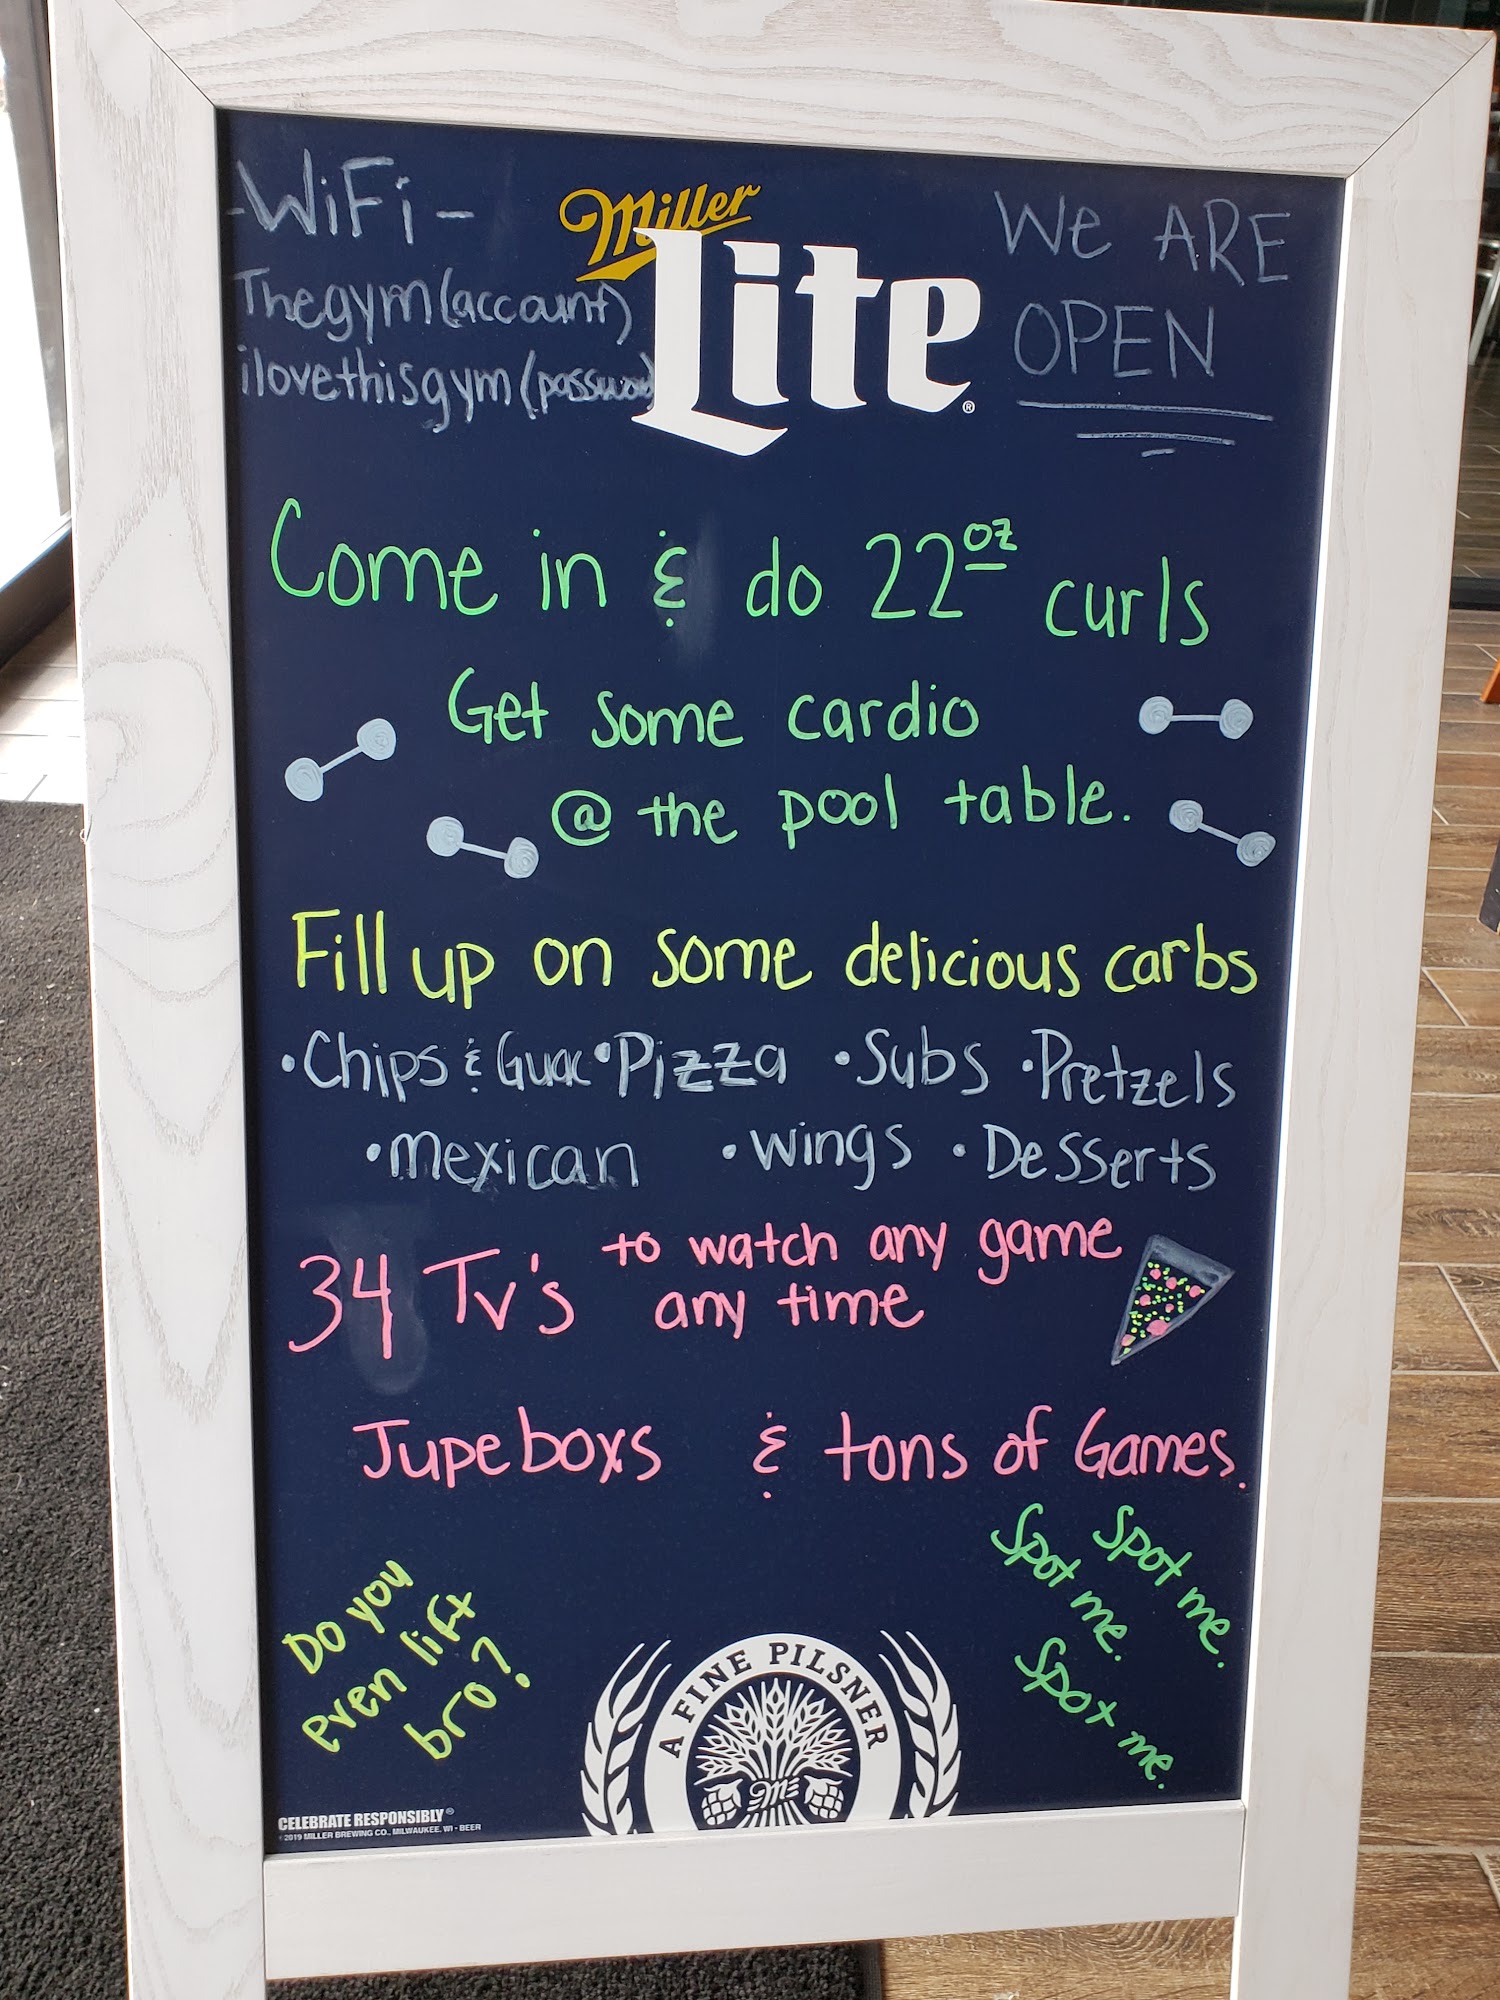 -WiFi-
Thegym(account)
ilovethisgym(password
Miller
Lite®
We ARE
OPEN
Come in & do 22oz curls
Get some cardio
@ the pool table.
Fill up on some delicious carbs
•Chips & Guac •Pizza •Subs •Pretzels
•mexican •wings •Desserts
34 Tv's to watch any game
any time
Jupeboxs & tons of Games.
Do you
even lift
bro?
Spot me.
Spot me.
Spot me.
A FINE PILSNER
M
CELEBRATE RESPONSIBLY®
©2019 MILLER BREWING CO., MILWAUKEE, WI - BEER